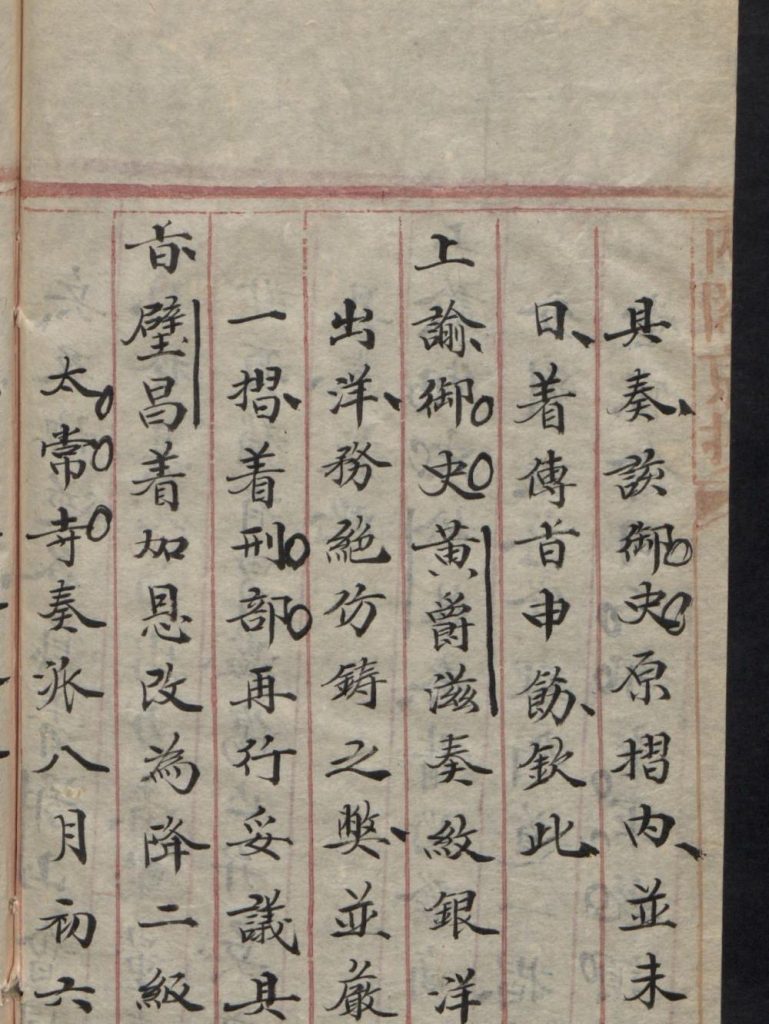 具奏、該御史原摺内、並未
日、着傳旨申飭、欽此、
上諭、御史黄爵滋奏紋銀洋
出洋、務絶仿鋳之弊、並嚴
一摺、着刑部再行妥議具
旨、璧昌着加恩改為降二級
太常寺奏派八月初六